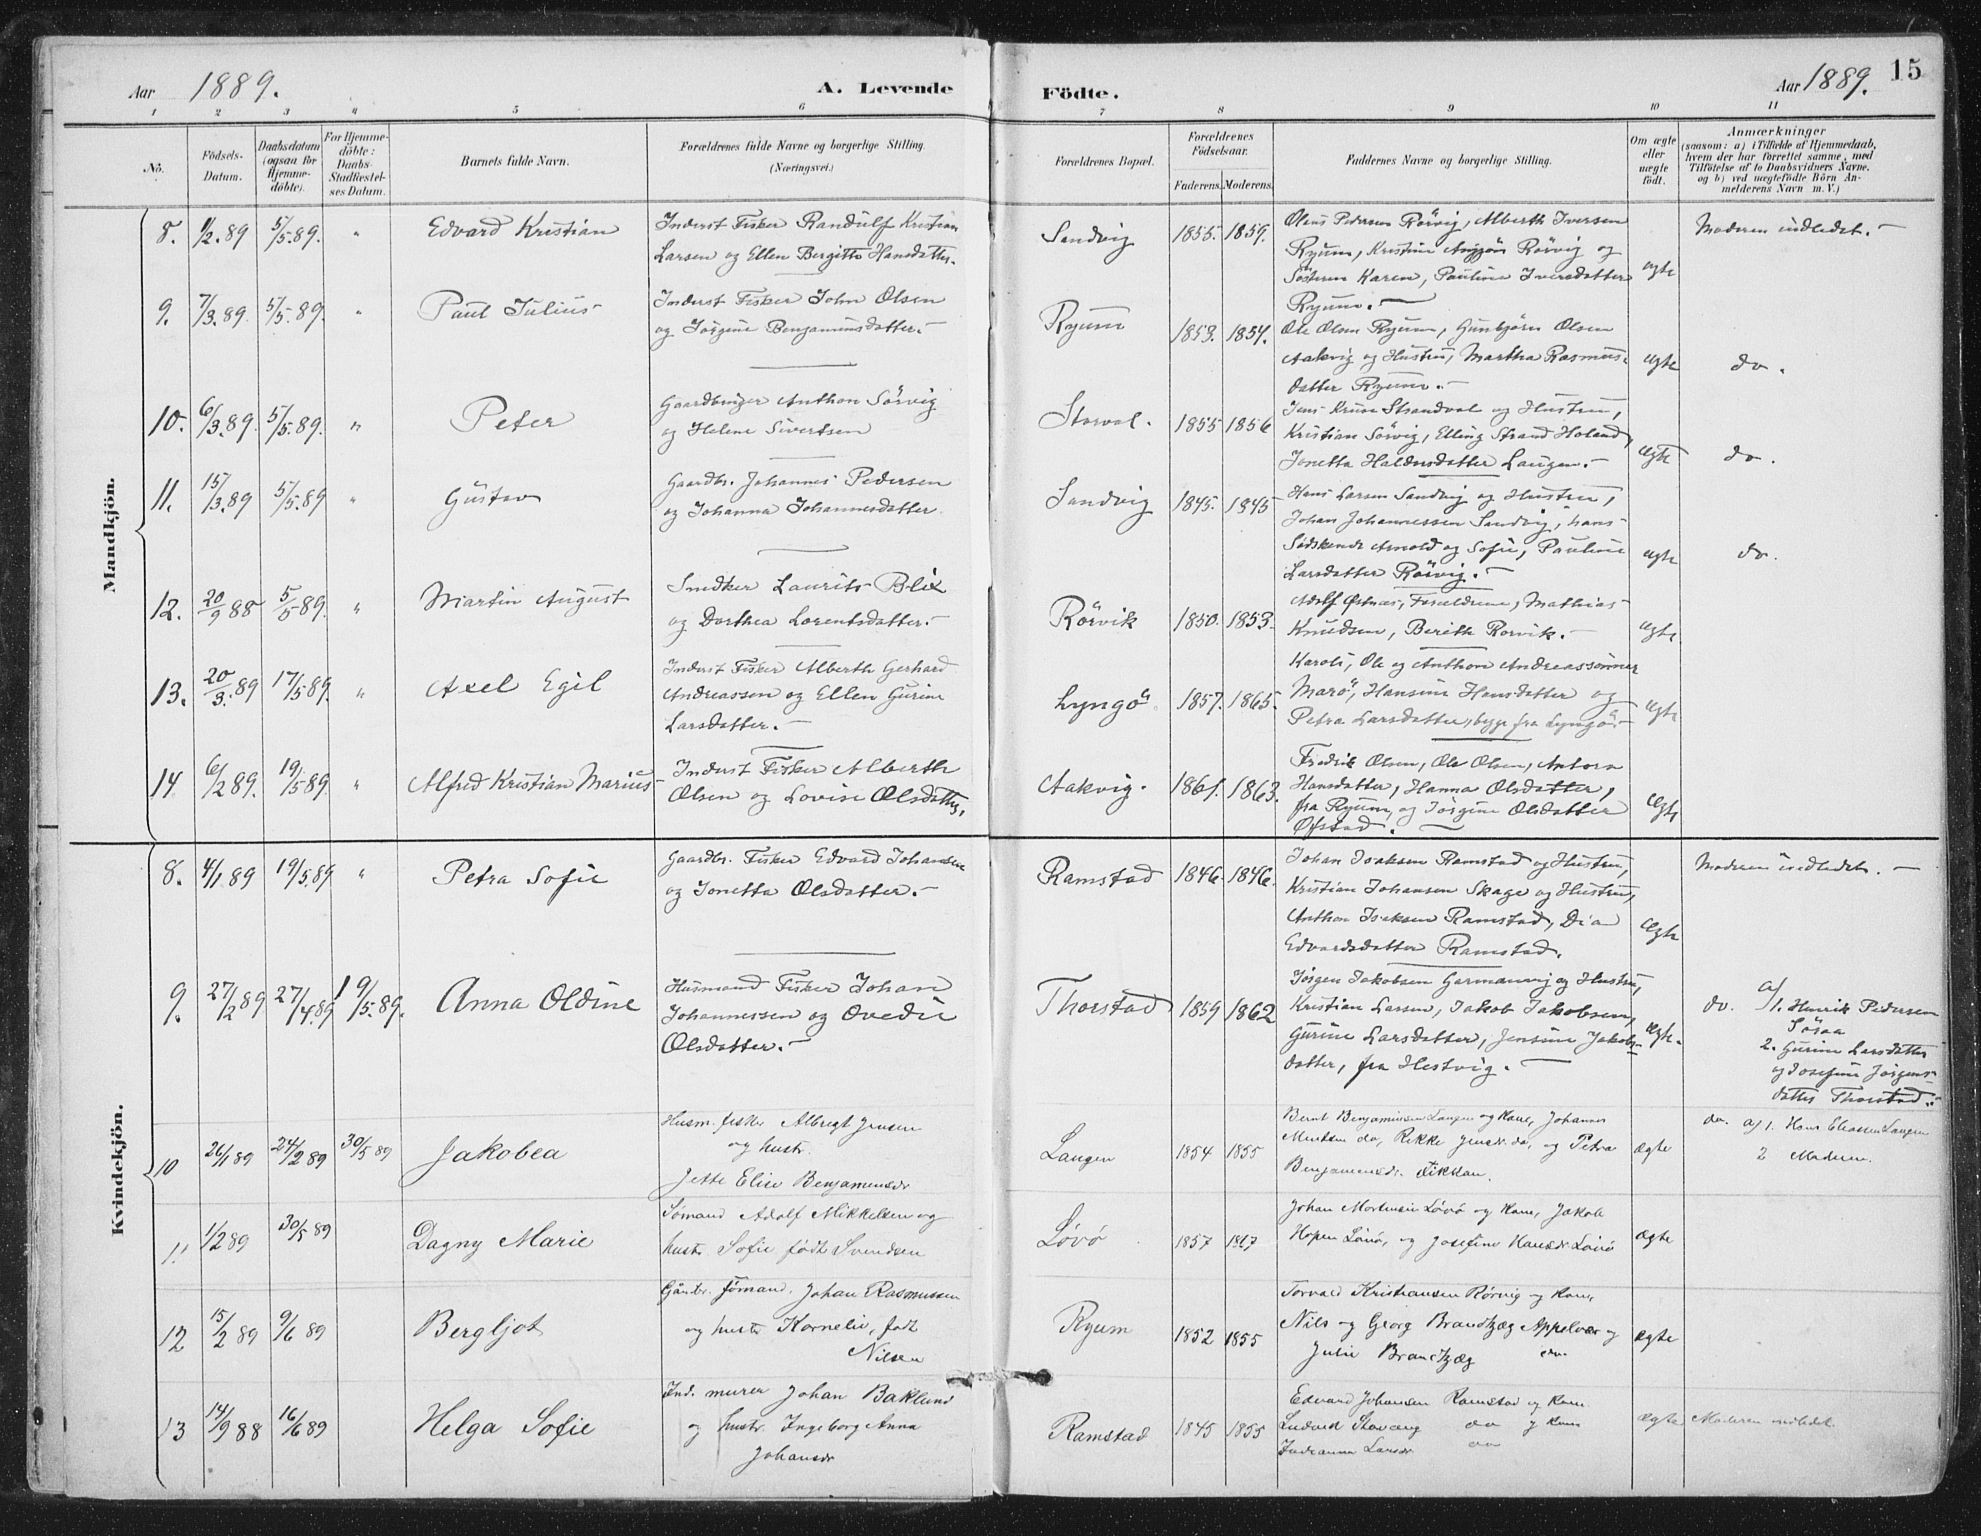 Aar 1889. A. Levende Födte. Aar 1889. 15
1 2 3 4 5 6 7 8 9 10 11
No. Födsels-Datum. Daabsdatum (ogsaa for Hjemme-döbte). For Hjemme-döbte: Daabs-Stadfæstel-ses Datum. Barnets fulde Navn. Forældrenes fulde Navne og borgerlige Stilling. (Næringsvei.) Forældrenes Bopæl. Forældrenes Födselsaar. Faderens. Moderens. Faddernes Navne og borgerlige Stilling. Om ægte eller uægte födt. Anmærkninger (saasom: a) i Tilfælde af Hjemmedaab, hvem der har forrettet samme, med Tilföielse af to Daabsvidners Navne, og b) ved uægtefödte Börn An-melderens Navn m. V.)
Mandkjön.
8. 1/2.89 5/5.89. " Edvard Kristian
Inderst Fisker Randulf Kristian
Larsen og Ellen Bergitte Hansdatter.
Sandvig 1855. 1859.
Olaus Pedersen Rörvig, Alberth Iversen
Ryum, Kristine Rörvig og
Søsteren Karen, Pauline Iversdatter
Ryum. —
ægte
Moderen indledet. —
9. 7/3.89. 5/5.89. " Paul Julius
Inderst Fisker John Olsen
og Jørgine Benjaminsdatter. —
Ryum 1853. 1854.
Ole Olsen Ryum, Gunbjørn Olsen
Aakvig og Hustru, Martha Rasmus-
datter Ryum. —
ægte do.
10. 6/3.89. 5/5.89. " Peter
Gaardbruger Anthon Sörvig
og Helene Sivertsen
Storval. 1855 1856
Jens Kruse Strandval og Hustru,
Kristian Sörvig, Elling Strand Holand,
Jonetta Haldusdatter Laugen. —
ægte do.
11. 15/3.89 5/5.89 " Gustav
Gaardbr. Johannes Pedersen
og Johanna Johannesdatter.
Sandvig 1845. 1845
Hans Larsen Sandvig og Hustru,
Johan Johannessen Sandvig, hans
Sødskende Arnold og Sofie, Pauline
Larsdatter Rörvig. —
ægte do.
12. 20/9 88 5/5 89. " Martin August
Snedker Laurits Blix
og Dorthea Lorentsdatter. —
Rörvik 1850. 1853.
Adolf Østnæs, Forældrene, Mathias
Knudsen, Berith Rorvik. —
ægte
13. 20/3.89 17/5.89. " Axel Egil
Inderst Fisker Alberth Gerhard
Andreassen og Ellen Gurine
Larsdatter. —
Lyngö. 1857. 1865.
Karoli, Ole og Anthon Andreassønner
Marö, Hansine Hansdatter og
Petra Larsdatter, begge fra Lyngö. —
ægte
14 6/2 89. 19/5 89. " Alfred Kristian Marius
Inderst Fisker Alberth
Olsen og Lovise Olsdatter.
Aakvig. 1861. 1863.
Fredrik Olsen, Ole Olsen, Antora
Hansdatter, Hanna Olsdatter,
fra Ryum, og Jørgine Olsdatter
Øfstad. —
ægte
Kvindekjön.
8. 4/1 89 19/5.89 " Petra Sofie
Gaardbr. Fisker Edvard Johansen
og Jonetta Olsdatter. —
Ramstad 1846. 1846.
Johan Isaksen Ramstad og Hustru,
Kristian Johansen Skage og Hustru,
Anthon Isaksen Ramstad, Dia
Edvardsdatter Ramstad.
ægte
Moderen indledet. —
9. 27/2 89 27/4 89 19/5.89. Anna Oldine
Husmand Fisker Johan
Johannessen og Ovedie
Olsdatter. —
Thorstad 1859 1862
Jørgen Jakobsen Garmannvig og Hustru,
Kristian Larsen, Jakob Jakobsen,
Gurine Larsdatter, Jensine Jakobs-
datter, fra Hestvig. —
ægte.
do. a/1. Henrik Pedersen
Søraa
2. Gurine Larsdatter
og Josefine Jørgens-
datter Thorstad. —
10 26/1 89 24/2 89 30/5 89 Jakobea
Husm. fisker Albregt Jensen
og hustr.
Jette Elise Benjamensdr
Laugen 1854 1855
Bernt Benjaminsen Laugen og Kone, Johannes
do, Rikke Jensdr. do, og Petra
Benjamensdr.
ægte
do. a/1. Hans Eliassen Laugen
2 Moderen.
11 1/2 89 30/5 89 Dagny Marie
Sømand Adolf Mikkelsen og
hustr. Sofie født Svendsen
Løvø 1857
Johan Mortensen Løvø og Kone, Jakob
Hopen Løvø, og Josefine Hansdr Løvø
ægte
12 15/2 89 9/6 89 Bergljot
Gårdbr. sømand. Johan Rasmussen
og hustr Kornelie, født
Nilsen
Ryum 1852 1855
Torvald Kristiansen Rørvig og Kone,
Nils og Georg Brandtzæg Appelvær og
Julie Brandtzæg do.
ægte
13 14/9 88 16/6 89 Helga Sofie
Ind. murer Johan Baklund
og hustr. Ingeborg Anna
Johansdr
Ramstad 1845 1855
Edvard Johansen Ramstad og Kone
Ludvik do og Kone
Larsdr do
ægte Moderen indledet.